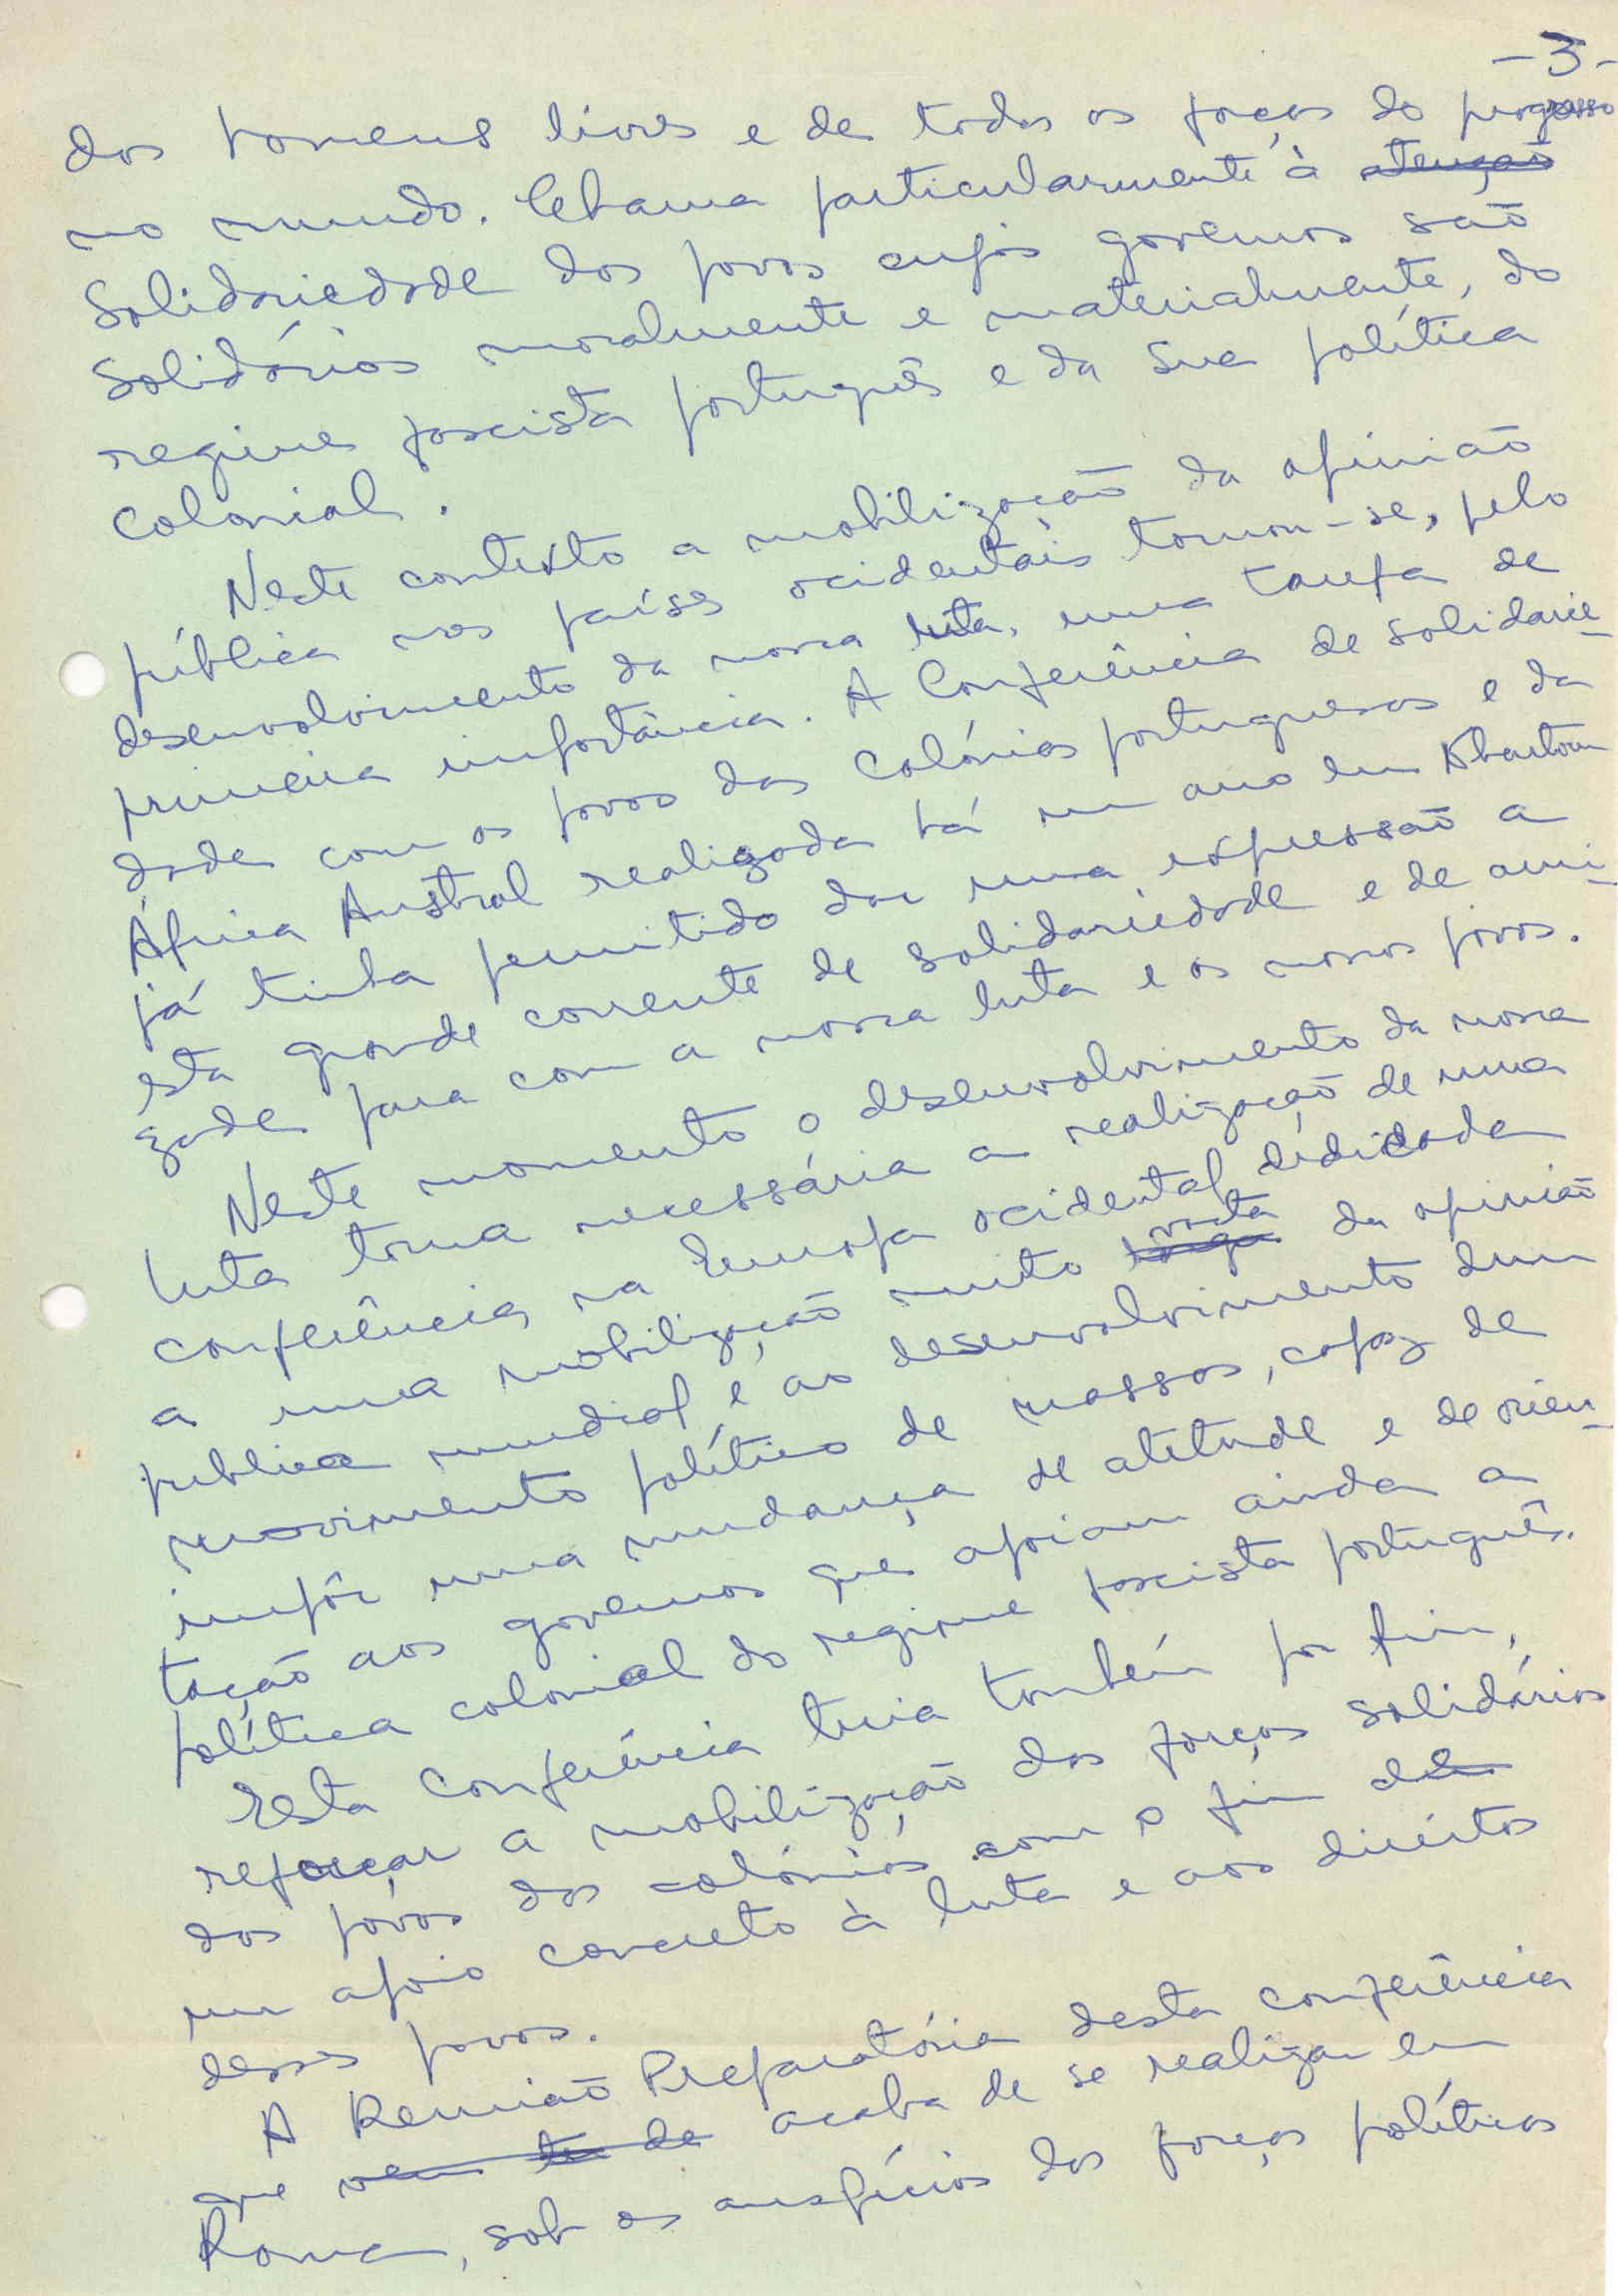 -3-
dos homens livres e de todas as forças do progresso
no mundo. Chama particularmente à atenção
Solidariedade dos povos cujos governos são
Solidários moralmente e materialmente, do
regime fascista português e da sua política
Colonial.
Neste contexto a mobilização da opinião
pública nos países ocidentais tornou-se, pelo
desenvolvimento da nossa luta, uma tarefa de
primeira importância. A Conferência de solidarie-
dade com os povos das Colónias portuguesas e da
África Austral realizada há um ano em Khartoum
já tinha permitido dar uma expressão a
esta grande corrente de solidariedade e de ami-
zade para com a nossa luta e os nossos povos.
Neste momento o desenvolvimento da nossa
luta torna necessária a realização de uma
conferência na Europa ocidental dedicada
a uma mobilização muito longa vasta da opinião
publica mundial e ao desenvolvimento dum
movimento político de massas, capaz de
impôr uma mudança de atitude e de orien-
tação aos governos que apoiam ainda a
política colonial do regime fascista português.
Esta Conferência teria também por fim,
reforçar a mobilização das forças solidárias
dos povos das colónias com o fim de
um apoio concreto à luta e aos direitos
desses povos.
A Reunião Preparatória desta conferência
que vem de acaba de se realizar em
Roma, sob os auspícios das forças políticas